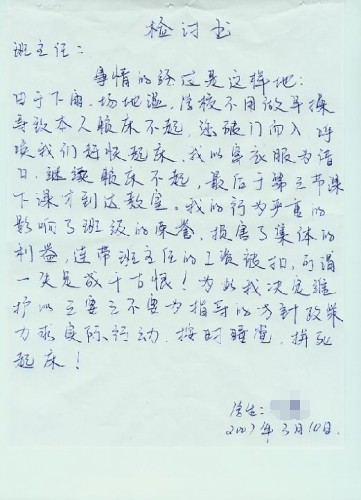 检讨书
班主任：
事情的经过是这样地：
由于下雨，场地湿，学校不用做早操
导致本人赖床不起，还破门而入呼
唤我们赶快起床，我以穿衣服为借
口，继续赖床不起，最后于第三节课
下课才到达教室。我的行为严重的
影响了班级的荣誉，损害了集体的
利益，连带班主任的工资被扣，可谓
一失足成千古恨！为此我决定维
护以三要三不要为指导的方针政策
力求实际行动，按时睡觉，拼死
起床！
学生：
2007年3月10日